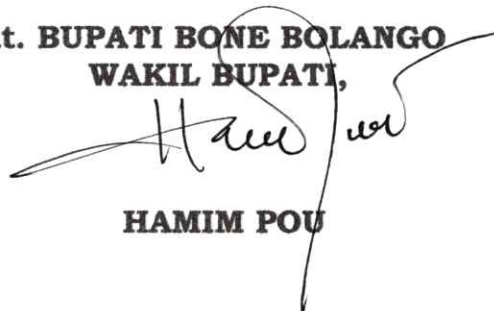 t. BUPATI BONE BOLANGO
WAKIL BUPATI,
HAMIM POU